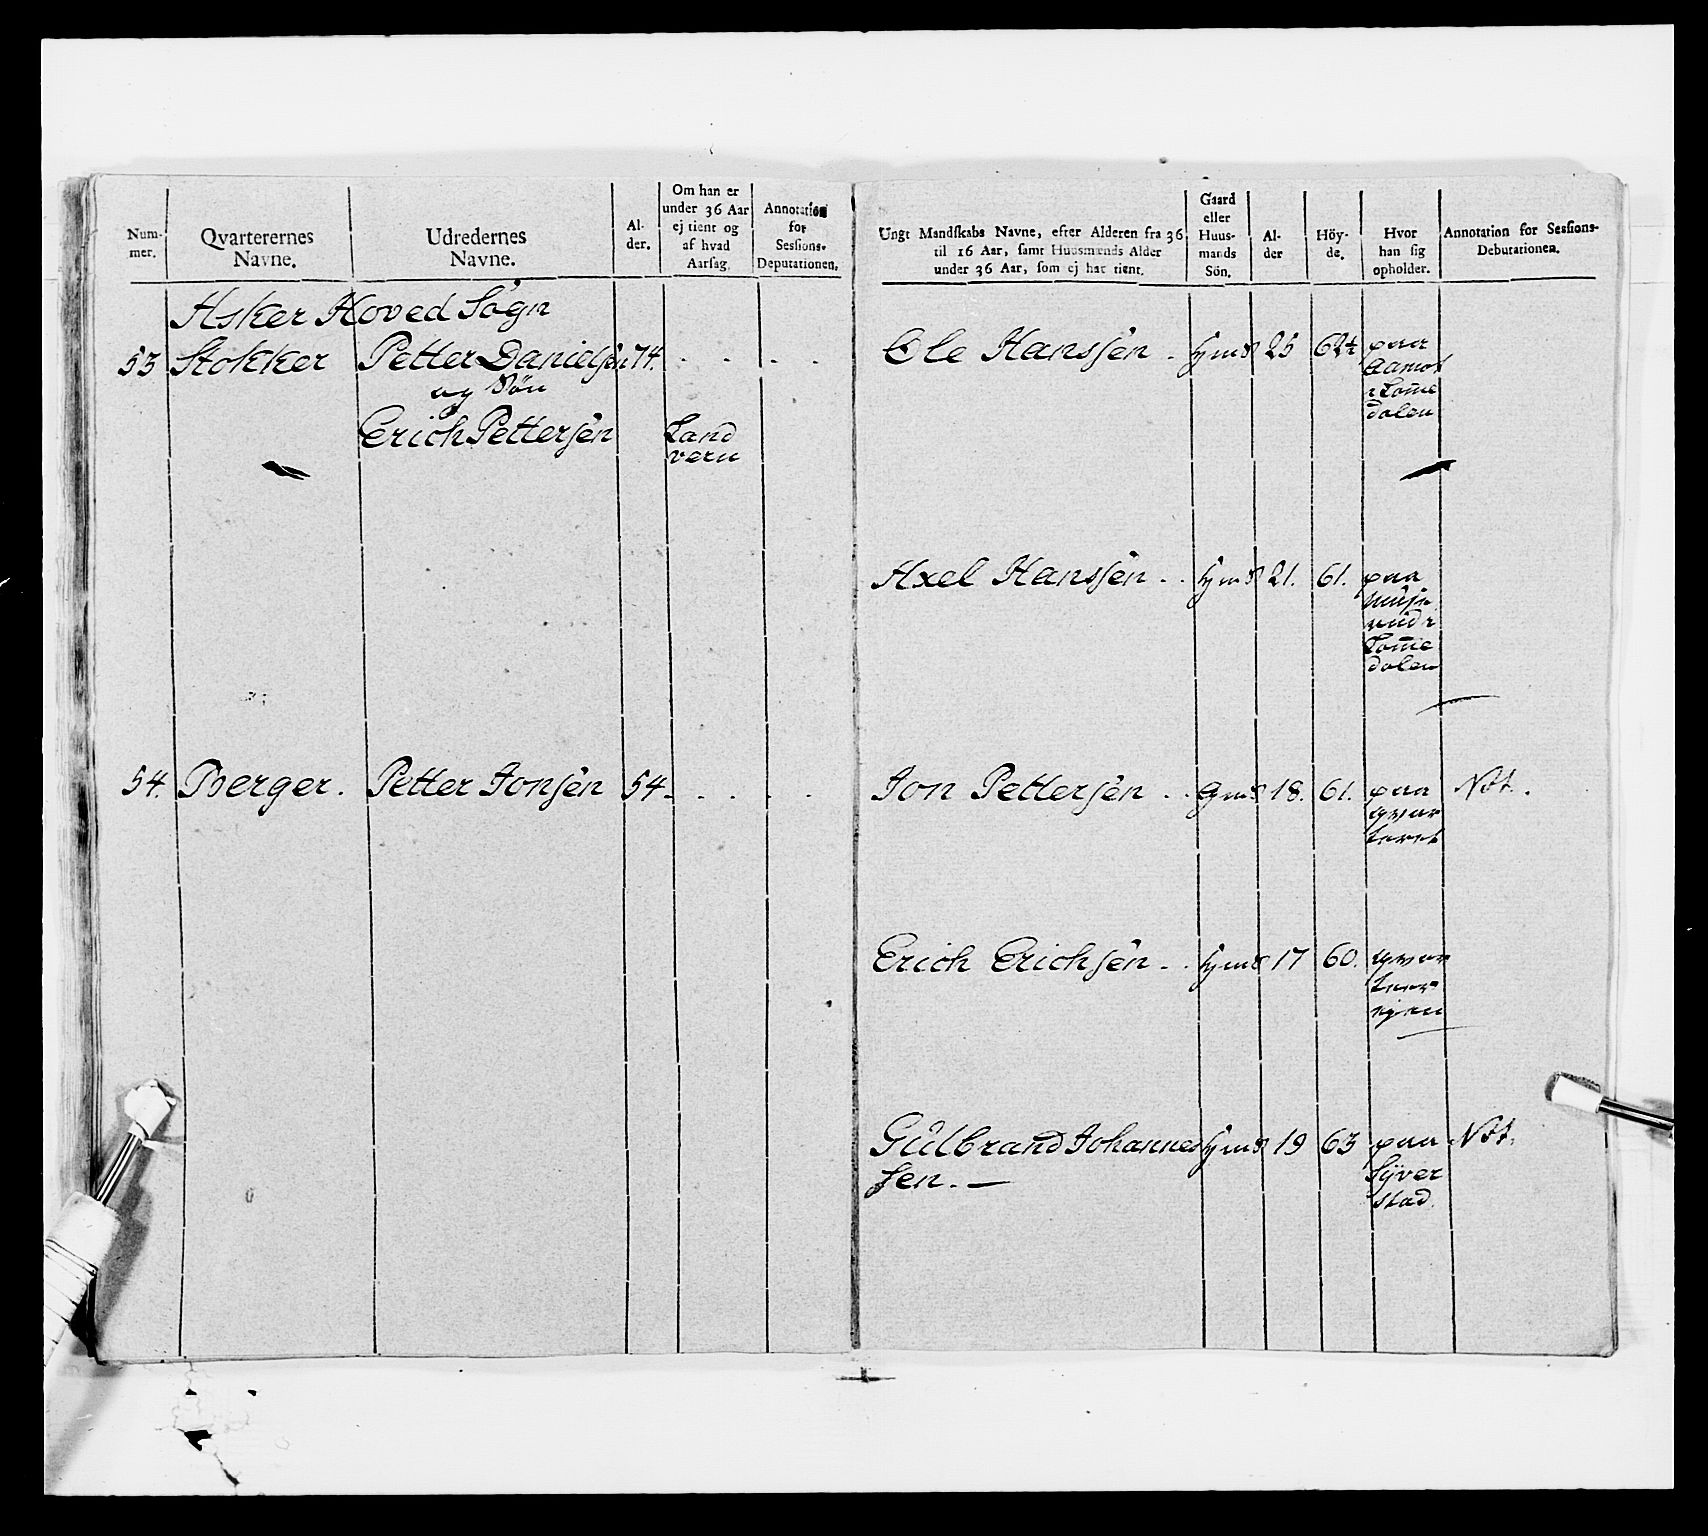 Num-
mer.
Qvarterernes
Navne.
Udredernes
Navne.
Al-
der.
Om han er
under 36 Aar
ej tient og
af hvad
Aarsag.
Annotation
for
Sessions-
Deputationen.
Ungt Mandskabs Navne, efter Alderen fra 36
til 16 Aar, samt Huusmænds Alder
under 36 Aar, som ej har tient.
Gaard
eller
Huus-
mands
Sön.
Al-
der
Höy-
de.
Hvor
han sig
opholder.
Annotation for Sessions-
Deputationen.
Asker Hoved Sogn
53 Stokker Petter Danielsen 74.
og Søn
Erich Pettersen Land
vern
Ole Hansen hjmS 25 62½ paa
Aamot
i Lome
dalen
Axel Hansen hjmS 21. 61. paa
rud i
Lome
dalen
54. Berger. Petter Jonsen 54.
Jon Pettersen gmS 18. 61. paa Not.
qvar
teret
Erich Erichsen hjmS 17 60. qvar
teer
ejeren
Gulbrand Johannes hjmS 19 63 paa Not.
sen. Syver
stad.